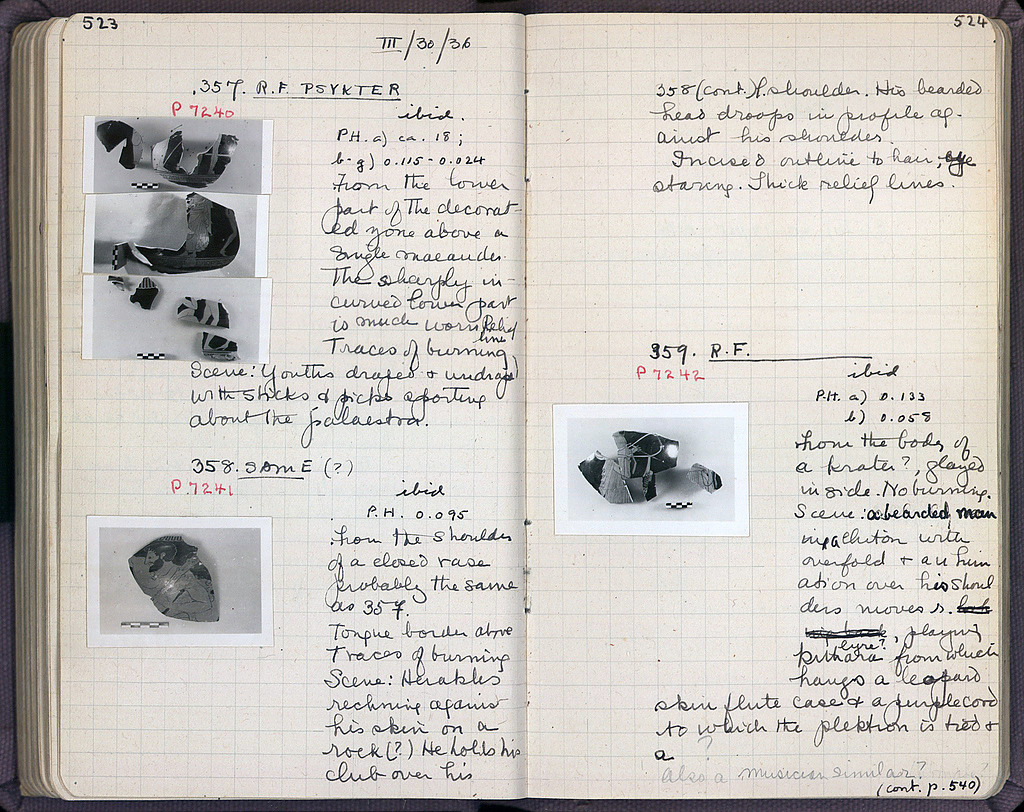 523
III/30/36
.357. R.F. PSYKTER
P 7240
ibid.
P.H. a) ca. 18;
b-g) 0.115-0.024
From the lower
part of the decorat-
ed zone above a
single maeander.
The sharply in-
curved lower part
is much worn Relief
line
Traces of burning
Scene: Youths draped & undraped
with sticks & picks sporting
about the palaestra.
358. SAME (?)
P 7241
ibid
P.H. 0.095
From the shoulder
of a closed vase
probably the same
as 357.
Tongue border above
Traces of burning
Scene: Herakles
reclining against
his skin on a
rock(?) He holds his
club over his
524
358 (cont.) l. shoulder. His bearded
head droops in profile ag-
ainst his shoulder.
Incised outline to hair, eye
staring. Thick relief lines.
359. R.F.
P 7242
ibid
P.H. a) 0.133
b) 0.058
From the body of
a krater?, glazed
inside. No burning.
Scene: a bearded man
in a chiton with
overfold & an him
ation over his shoul
ders moves r.
, playing
lyre?
kithara from which
hangs a leopard
skin flute case & a purple cord
to which the plektron is tied &
a ?
Also a musician similar?
(cont. p. 540)